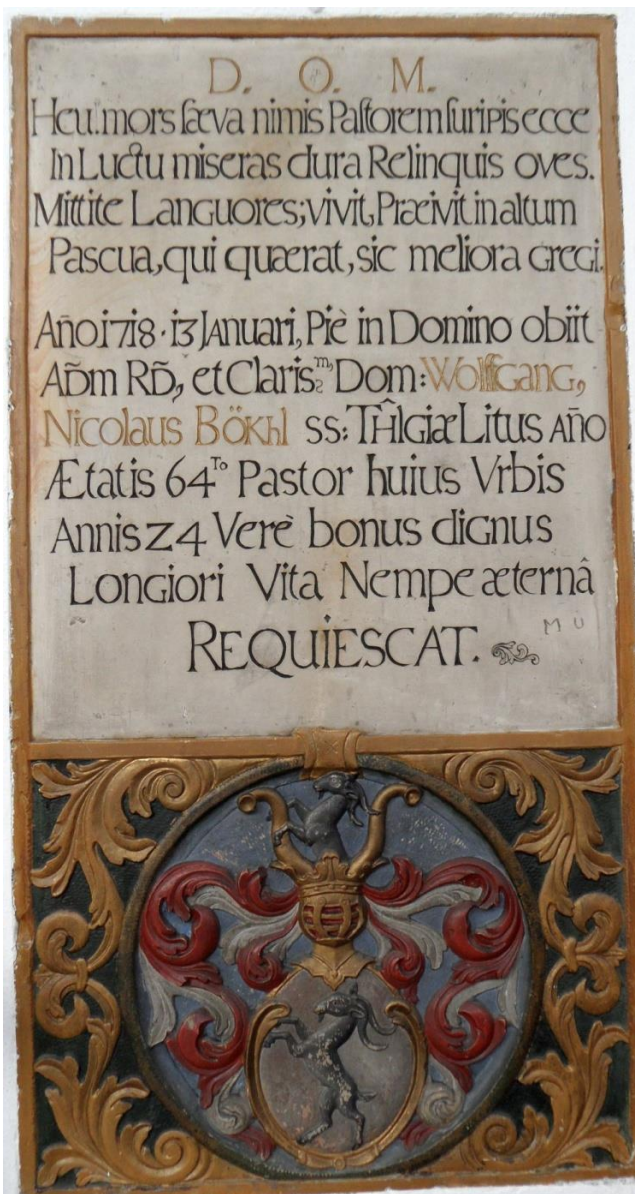 D. O. M.
Heu.mors sæva nimis Pastorem suripis ecce
In Luctu miseras dura Relinquis oves.
Mittite Languores; vivit, Præivit in altum
Pascua, qui quærat, sic meliora Gregi.
Añoi7i8 · i3 Januari, Piè in Domino obiit
AD̃m RD̃, et Claris.m, Dom: Wolffgang,
Nicolaus Bökhl ss: TH̑lgiæ Litus Año
Ætatis 64.to Pastor huius Vrbis
Annis 24 Verè bonus dignus
Longiori Vita Nempe æternâ
REQUiESCAT.
M U